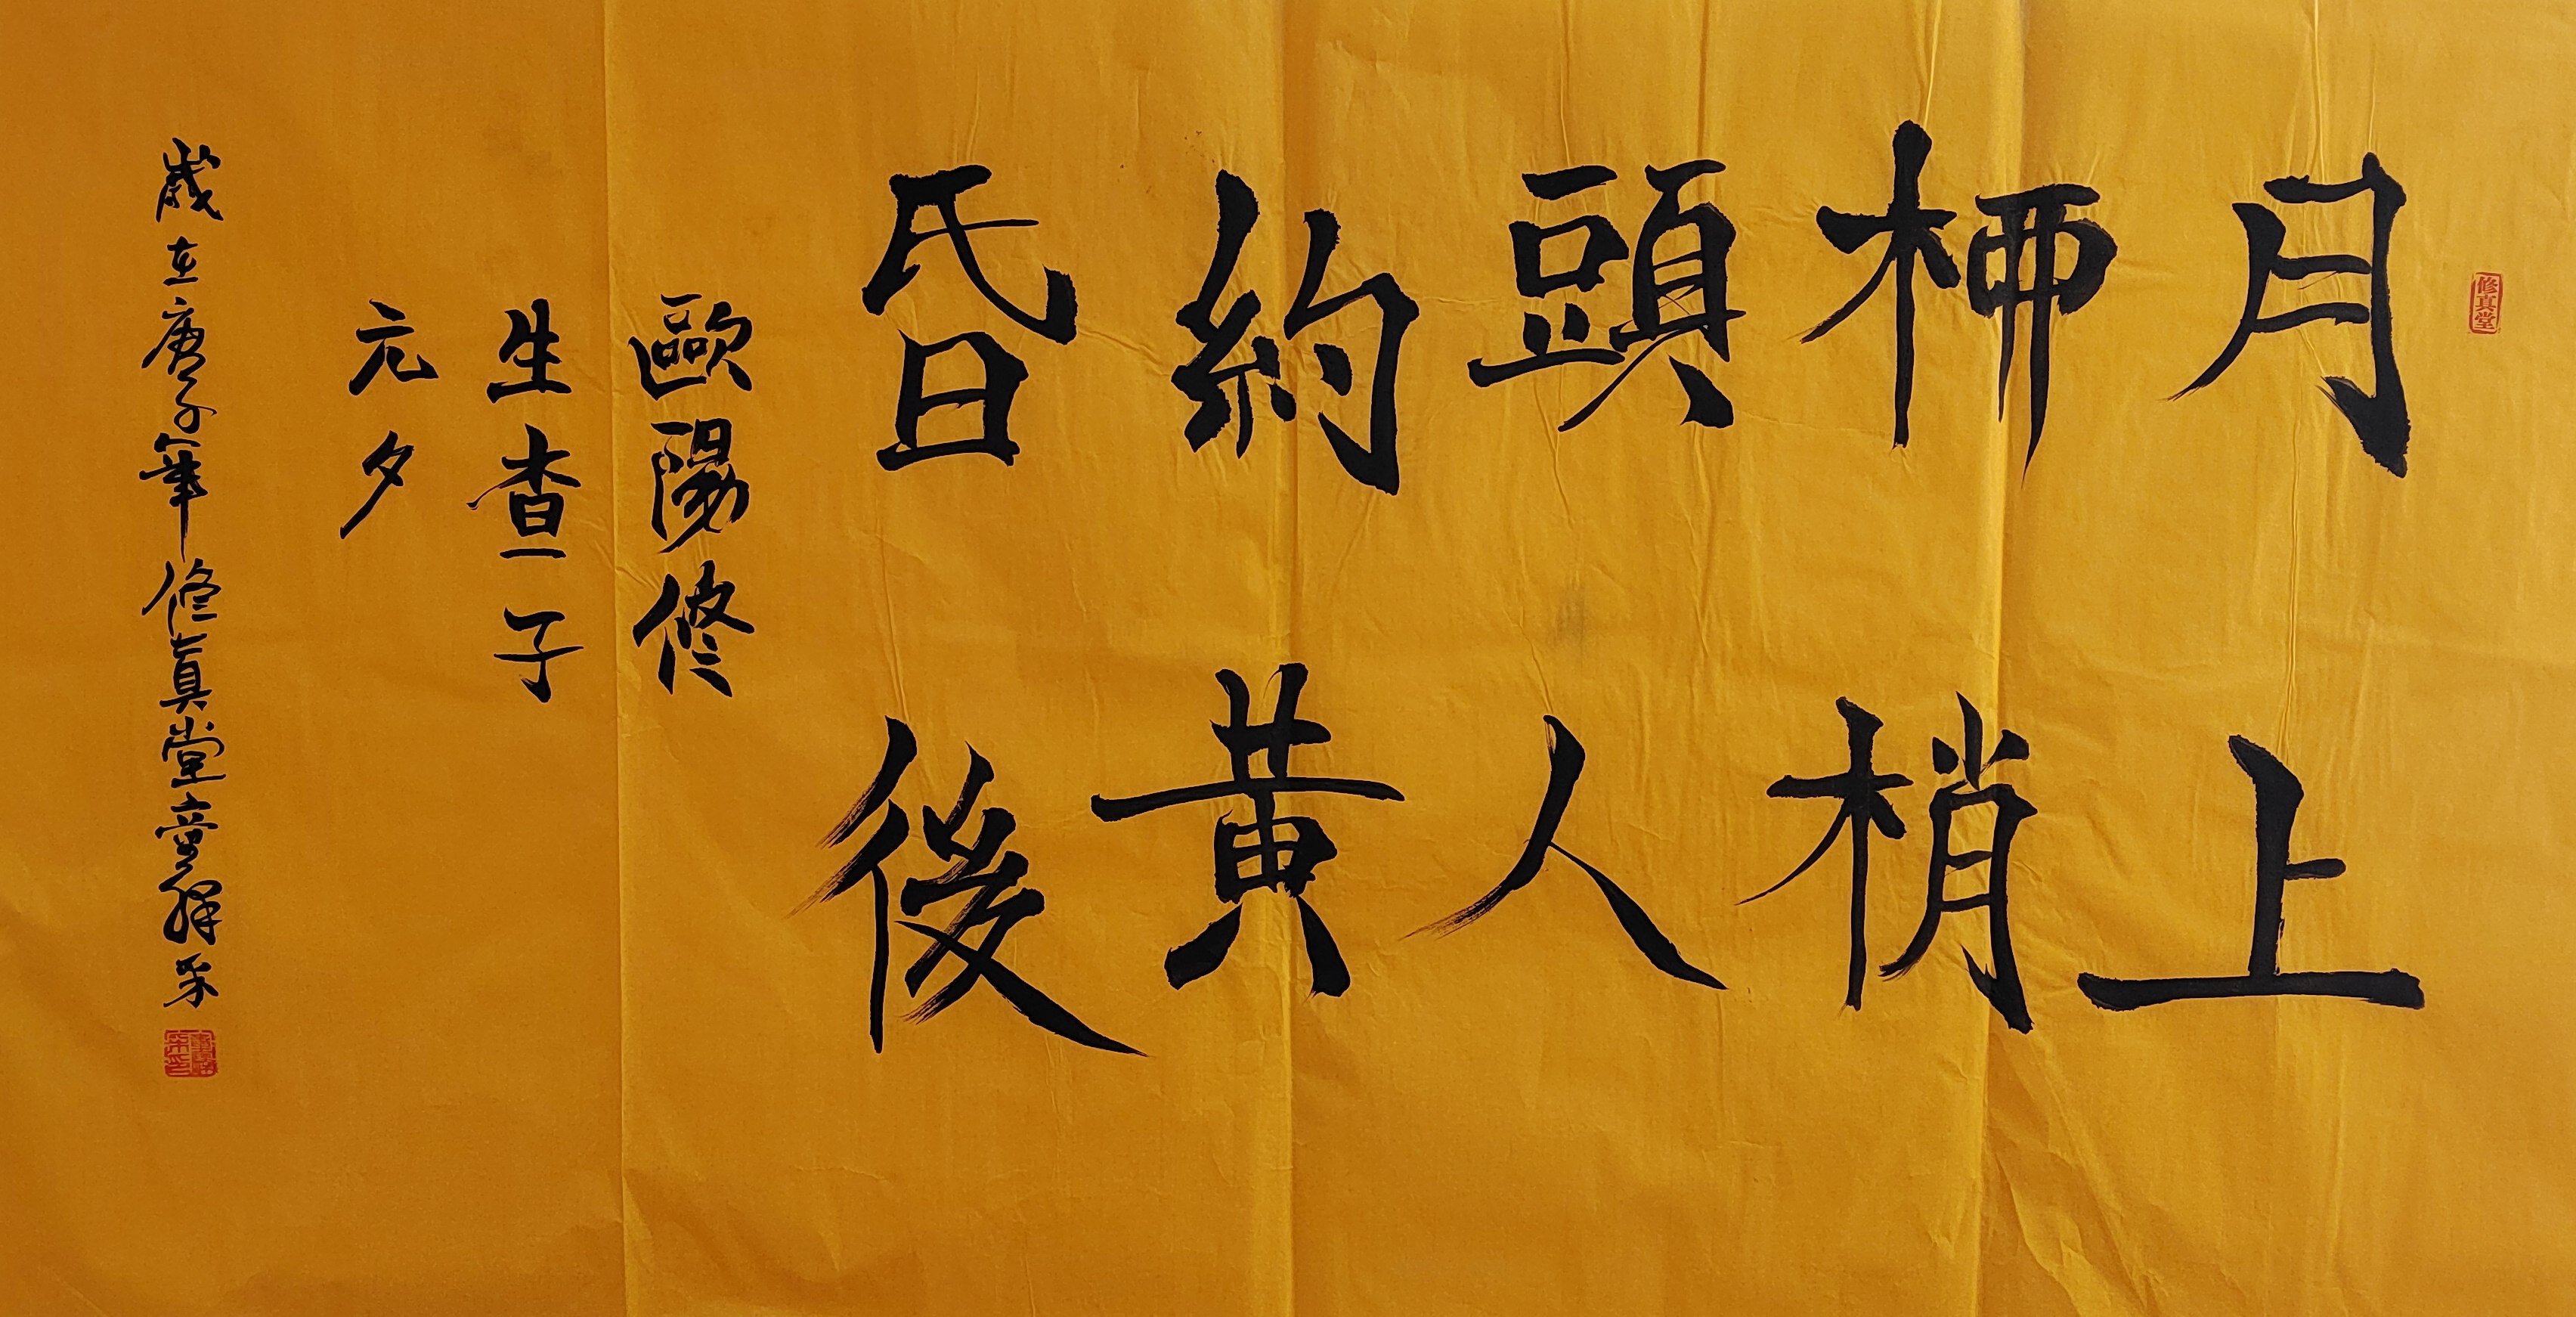 修真堂
月上
桺梢
頭人
約黃
昏後
歐陽修
生查子
元夕
歲在庚子年修真堂